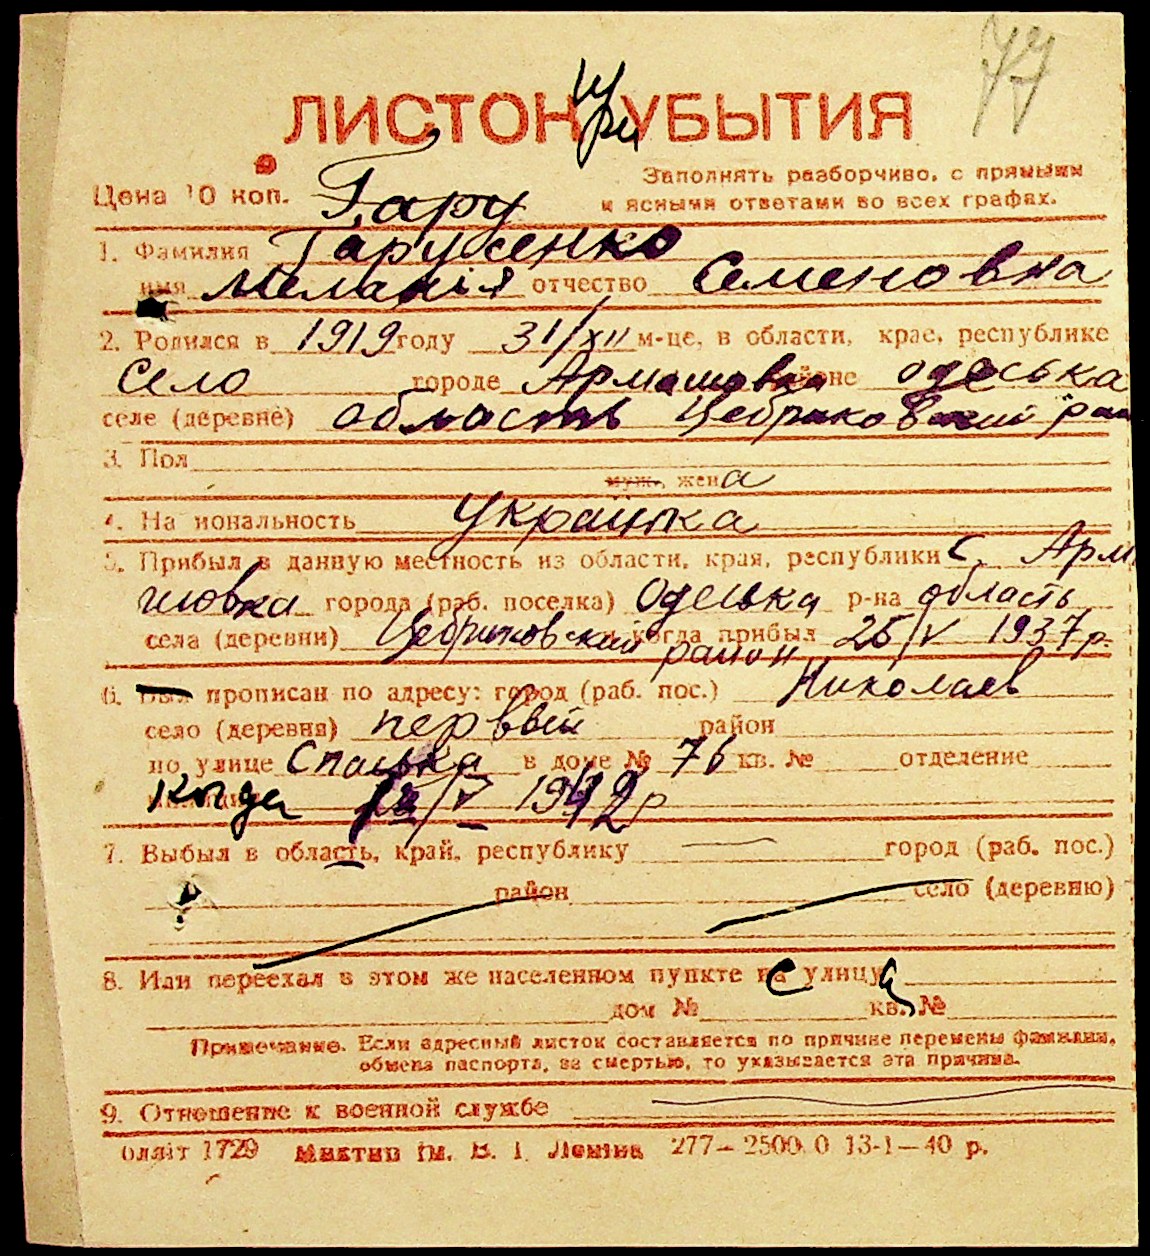 77
ЛИСТОК УБЫТИЯ
при
Цена 10 коп.
Заполнять разборчиво, с прямыми
и ясными ответами во всех графах.
Гару
1. Фамилия Гарусенко
имя Меланія отчество Семеновна
2. Родился в 1919 году 31/XII м-це, в области, крае, республике
село городе Армашовка районе одеська
селе (деревне) область Цебриковский рай
3. Пол
муж., жена
4. Национальность Українка
5. Прибыл в данную местность из области, края, республики с. Арма
шовка города (раб. поселка) Одеська р-на область
села (деревни) Цебриковский район и когда прибыл 25/V 1937 р.
6. Был прописан по адресу: город (раб. пос.) Николаев
село (деревня) первый район
по улице Спаська в доме № 76 кв. № отделение
когда 12/V 1942 р
7. Выбыл в область, край, республику — город (раб. пос.)
район село (деревню)
8. Или переехал в этом же населенном пункте с улицы
дом № кв. №
Примечание. Если адресный листок составляется по причине перемены фамилии,
обмена паспорта, за смертью, то указывается эта причина.
9. Отношение к военной службе
олліт 1729 Миктип ім. В. І. Леніна 277—2500.0 13-1—40 р.